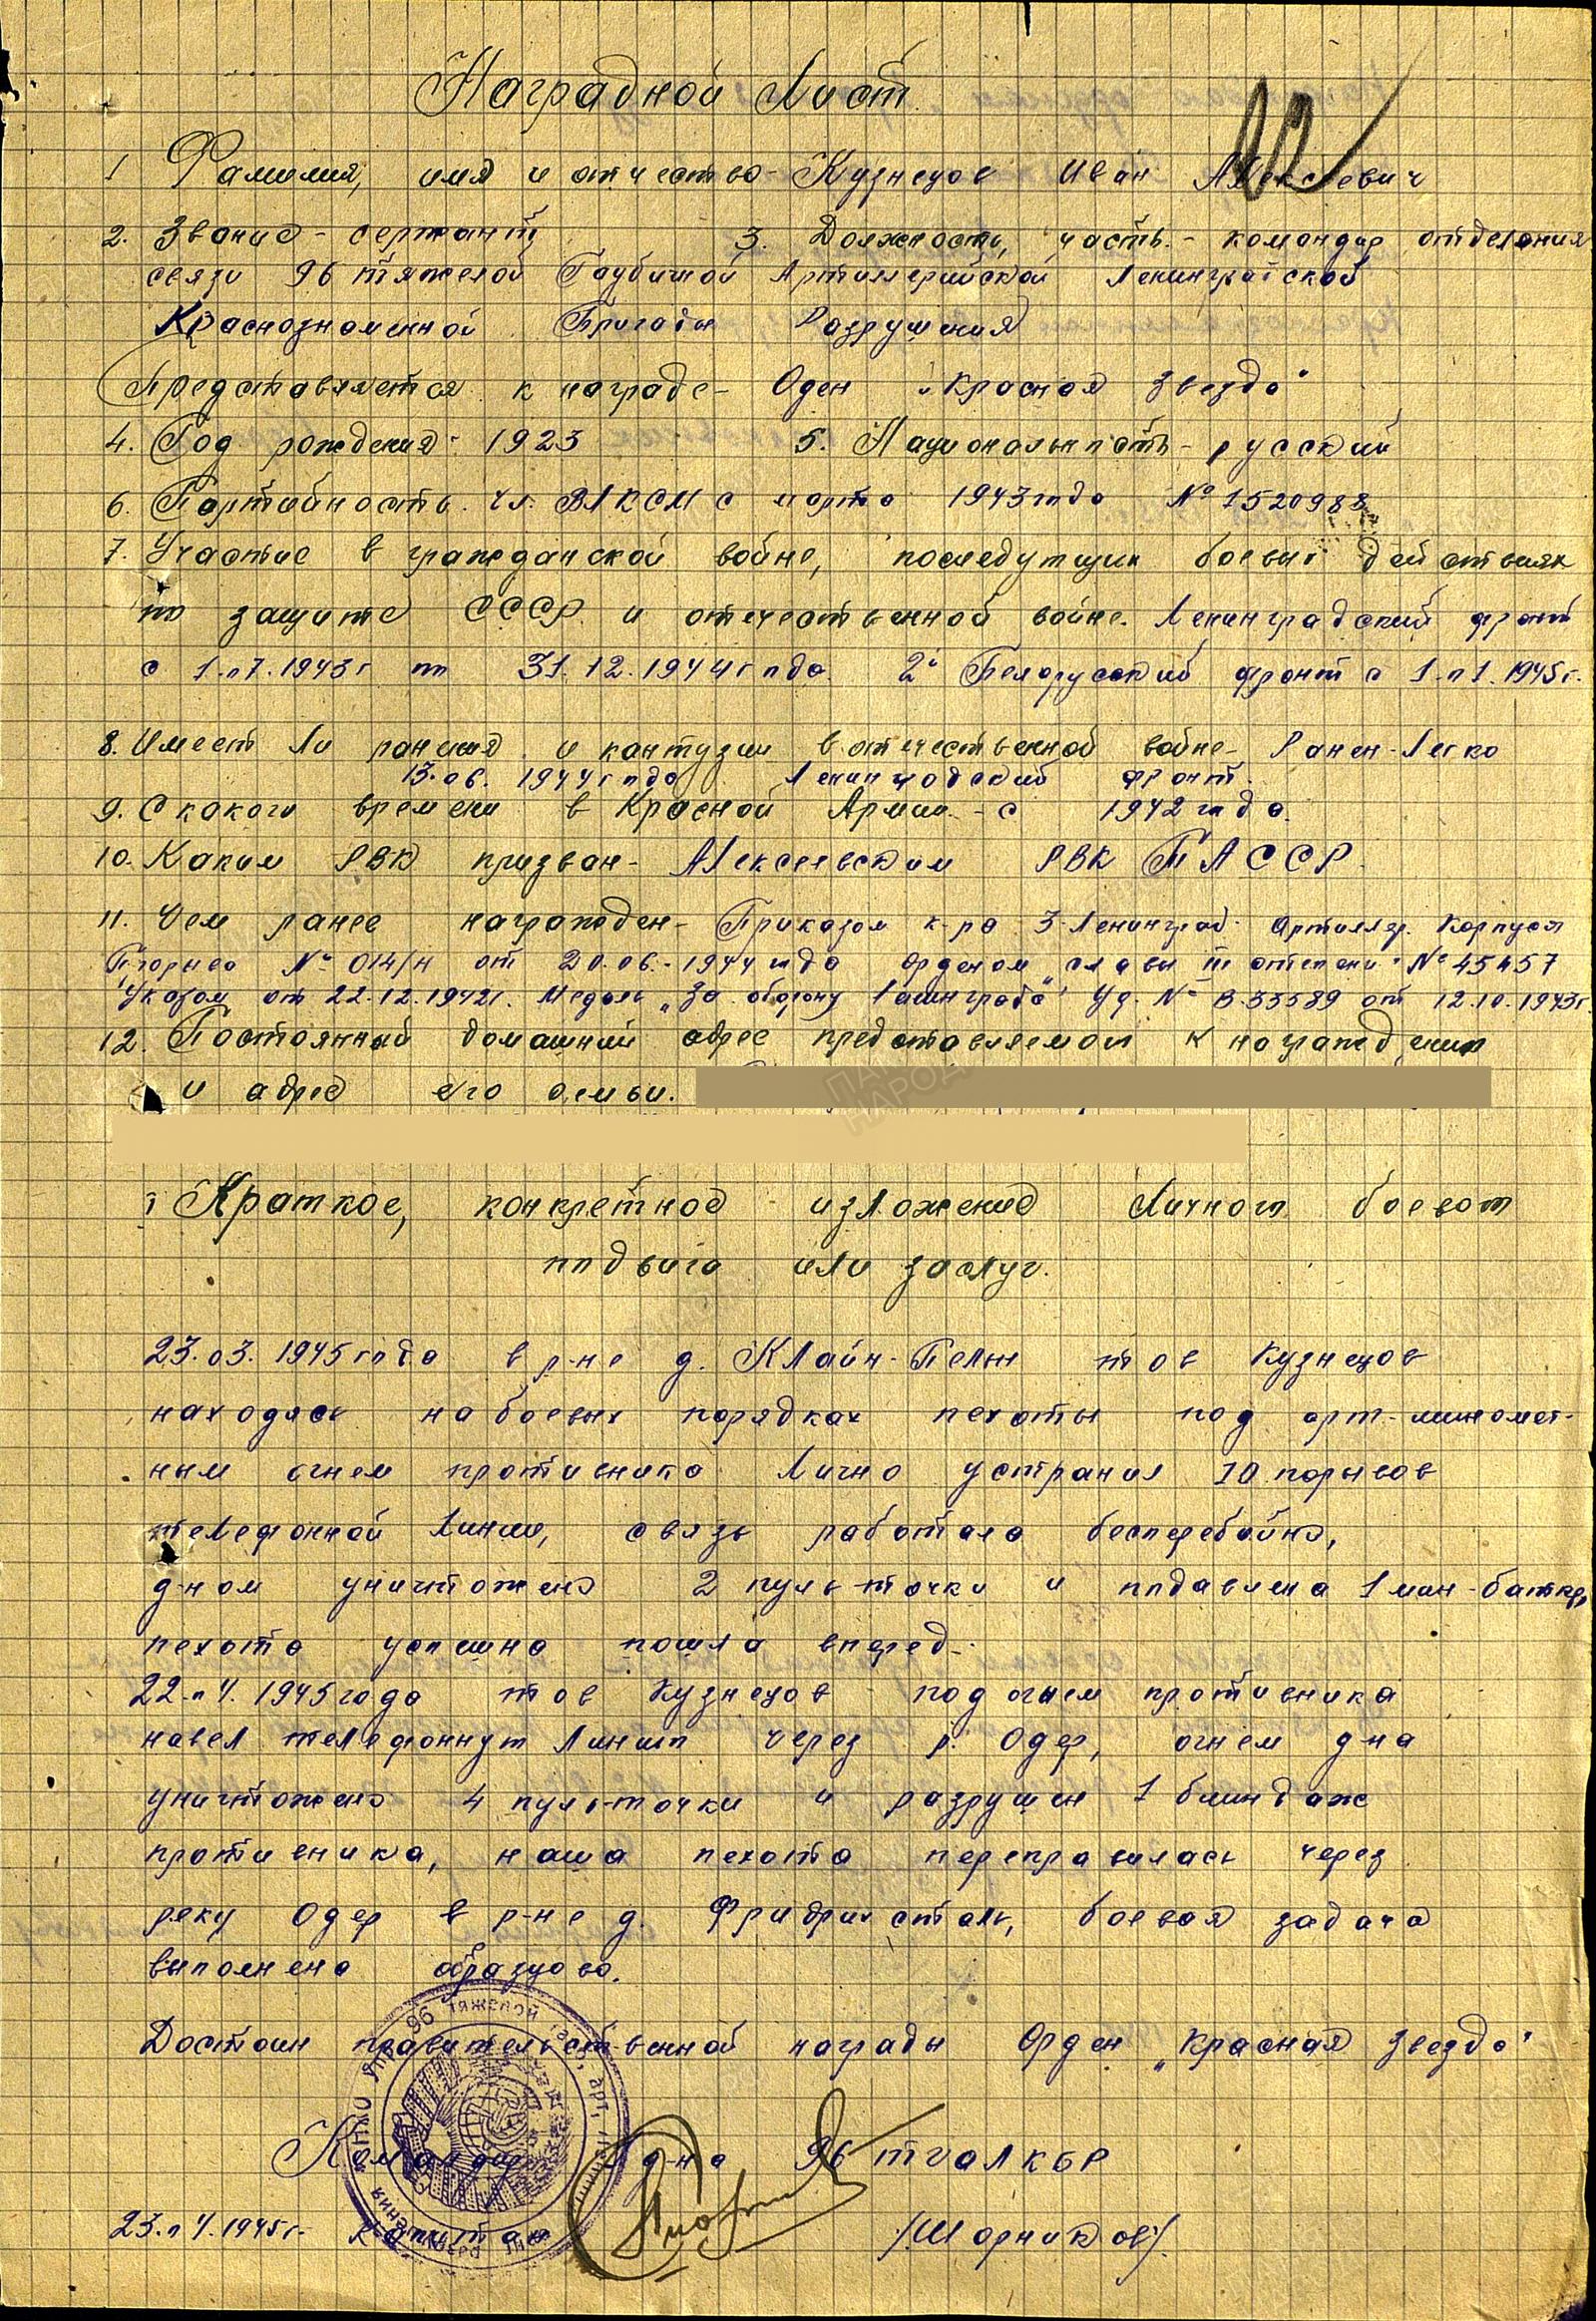 Наградной Лист
1 Фамилия, имя и отчество- Кузнецов Иван Алексеевич
2. Звание - сержант 3. Должность, часть. - командир отделения
связи 96 тяжелой Гаубичной Артиллерийской Ленинградской
Краснознаменной Бригады Разрушения
Представляется к награде- Оден „Красная Звезда"
4. Год рождения- 1923 5. Национальность- русский
6. Партийность. чл. ВЛКСМ с марта 1943года № 1520988
7. Участие в гражданской войне, последующих боевых действиях
по защите СССР и отечественной войне. Ленинградский фронт
с 1.07.1943г по 31.12.1944года. 2й Белорусский фронт с 1.01.1945г.
8. Имеет ли ранения и контузии в отечественной войне- Ранен-Легко
13.06.1944года Ленинградский фронт.
9. С какого времени в Красной Армии. - с 1942 года.
10. Каким РВК призван- Алексеевским РВК ТАССР.
11. Чем ранее награжден- Приказом к-ра 3 Ленинград. Артиллер. Корпуса
Прорыва № 014/н от 20.06.-1944 года орденом „Славы III степени"
Указом от 22.12.1942г. Медаль „За оборону Ленинграда" Уд. № В.33589 от 12.10.1943г.
12. Постоянный домашний адрес представляемого к награждению
и адрес его семьи.
Краткое, конкретное изложение Личного боевого
подвига или заслуг.
23.03.1945года в р-не д. Клайн-Пельн тов Кузнецов
находясь на боевых порядках пехоты под арт.-миномет-
ным огнем противника Лично устранил 10 порывов
телефонной Линии, связь работала бесперебойно,
д-ном уничтожено 2 пуль-точки и подавлена 1 мин-батар,
пехота успешно пошла вперед.
22.04.1945года тов Кузнецов под огнем противника
навел телефонную Линию через р. Одер, огнем д-на
уничтожено 4 пуль-точки и разрушен 1 блиндаж
противника, наша пехота переправилась через
реку Одер в р-не д. Фридрихсталь, боевая задача
выполнена образцово.
Достоин правительственной награды Орден „Красная Звезда"
Командир д-на 96 тгалкбр
23.04.1945г. капитан /Шорников/.